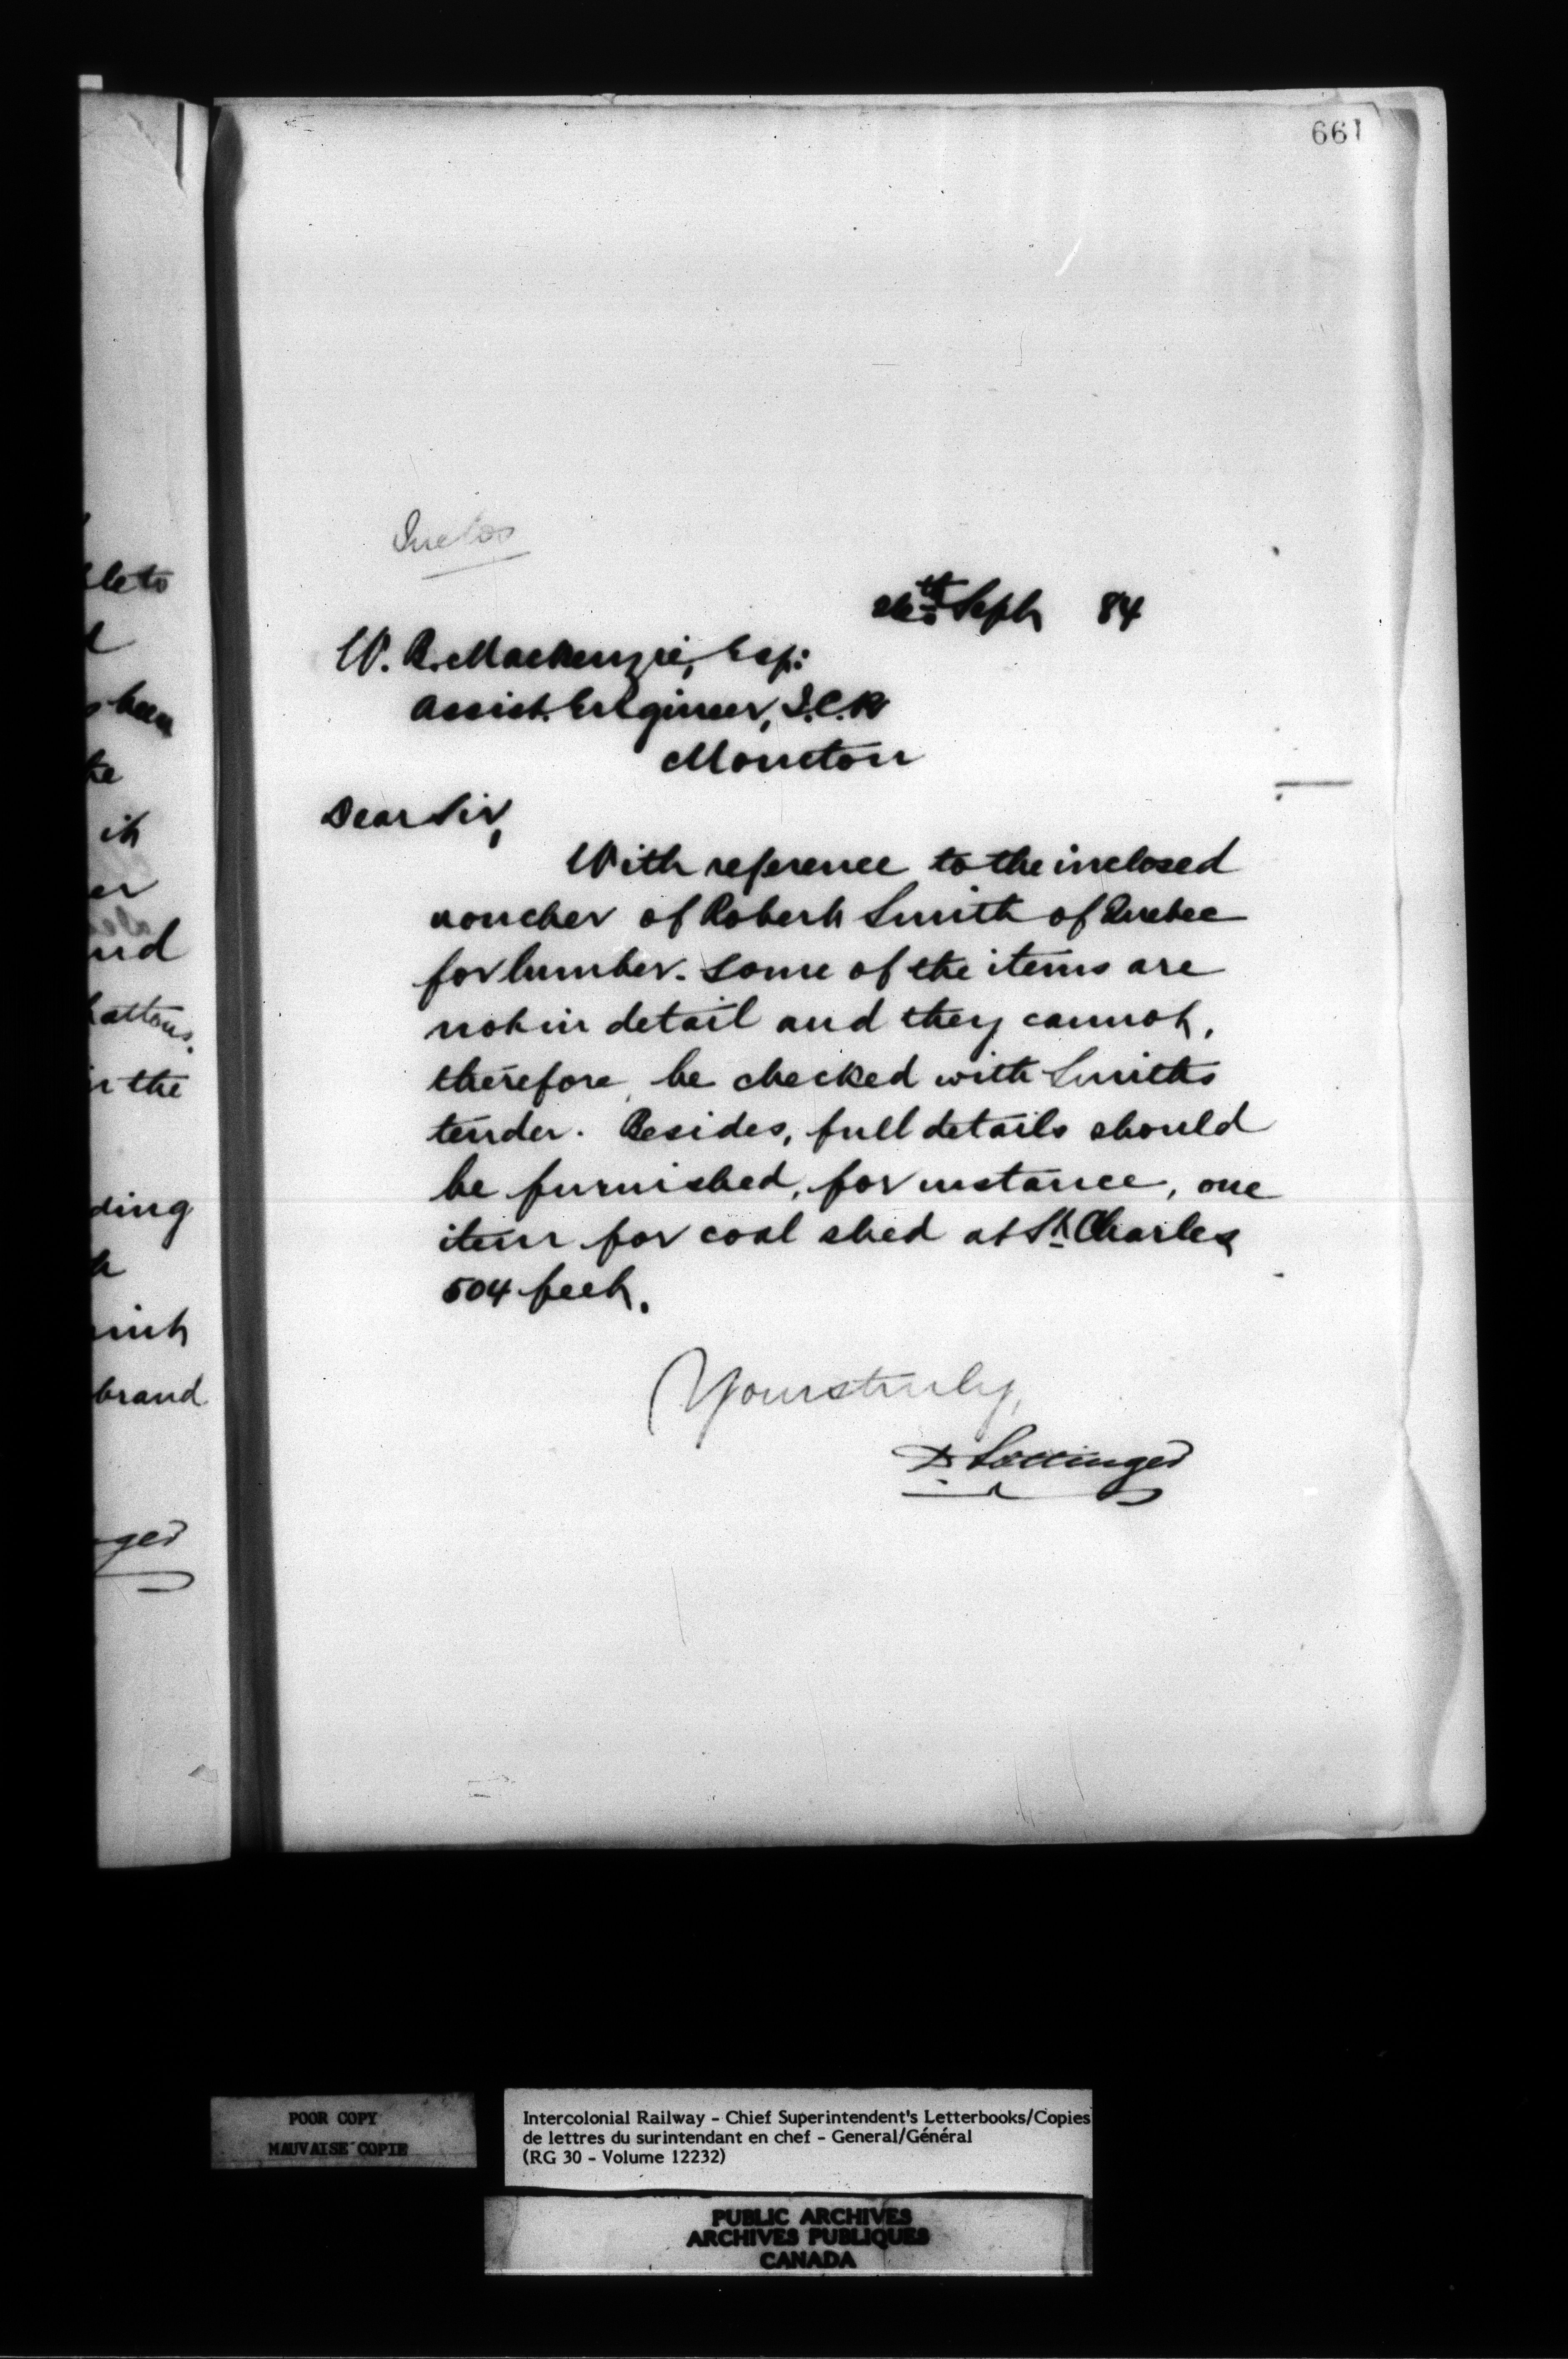 661
Inclos
26th Sept 84
W. B. Mackenzie, Esq:
Assist. Engineer, I.C.R
Moncton
Dear Sir,
With reference to the inclosed
voucher of Robert Smith of Quebec
for lumber. Some of the items are
not in detail and they cannot,
therefore, be checked with Smiths
tender. Besides, full details should
be furnished, for instance, one
item for coal shed at St. Charles
504 feet.
Yours truly,
D Pottinger
and
in the
ding
brand
POOR COPY
MAUVAISE COPIE
Intercolonial Railway - Chief Superintendent's Letterbooks/Copies
de lettres du surintendant en chef - General/Général
(RG 30 - Volume 12232)
PUBLIC ARCHIVES
ARCHIVES PUBLIQUES
CANADA